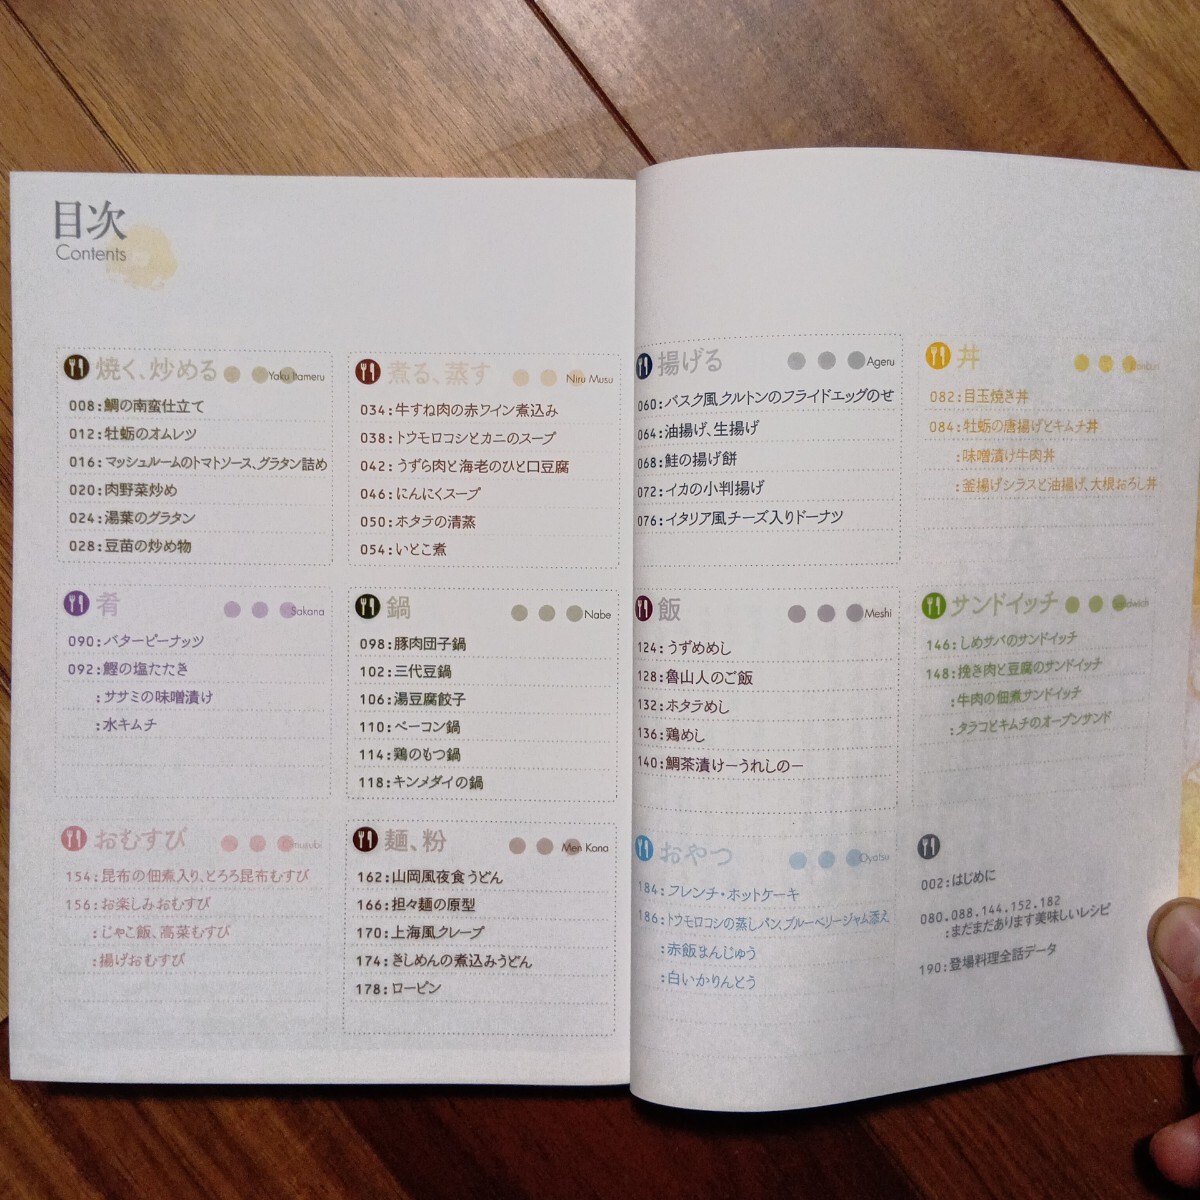 目次
Contents
焼く、炒める Yaku Itameru
008:鯛の南蛮仕立て
012:牡蛎のオムレツ
016:マッシュルームのトマトソース、グラタン詰め
020:肉野菜炒め
024:湯葉のグラタン
028:豆苗の炒め物
煮る、蒸す Niru Musu
034:牛すね肉の赤ワイン煮込み
038:トウモロコシとカニのスープ
042:うずら肉と海老のひと口豆腐
046:にんにくスープ
050:ホタラの清蒸
054:いとこ煮
肴 Sakana
090:バターピーナッツ
092:鰹の塩たたき
:ササミの味噌漬け
:水キムチ
鍋 Nabe
098:豚肉団子鍋
102:三代豆鍋
106:湯豆腐餃子
110:ベーコン鍋
114:鶏のもつ鍋
118:キンメダイの鍋
おむすび Omusubi
154:昆布の佃煮入り、とろろ昆布むすび
156:お楽しみおむすび
:じゃこ飯、高菜むすび
:揚げおむすび
麺、粉 Men Kona
162:山岡風夜食うどん
166:担々麺の原型
170:上海風クレープ
174:きしめんの煮込みうどん
178:ロービン
揚げる Ageru
060:バスク風、クルトンのフライドエッグのせ
064:油揚げ、生揚げ
068:鮭の揚げ餅
072:イカの小判揚げ
076:イタリア風、チーズ入りドーナツ
丼 Donburi
082:目玉焼き丼
084:牡蛎の唐揚げとキムチ丼
:味噌漬け牛肉丼
:釜揚げシラスと油揚げ、大根おろし丼
飯 Meshi
124:うずめめし
128:魯山人のご飯
132:ホタラめし
136:鶏めし
140:鯛茶漬けーうれしのー
サンドイッチ Sandwich
146:しめサバのサンドイッチ
148:挽き肉と豆腐のサンドイッチ
:牛肉の佃煮サンドイッチ
:タラコとキムチのオープンサンド
おやつ Oyatsu
184:フレンチ・ホットケーキ
186:トウモロコシの蒸しパン、ブルーベリージャム添え
:赤飯まんじゅう
:白いかりんとう
002:はじめに
080.088.144.152.182
:まだまだあります美味しいレシピ
190:登場料理全話データ